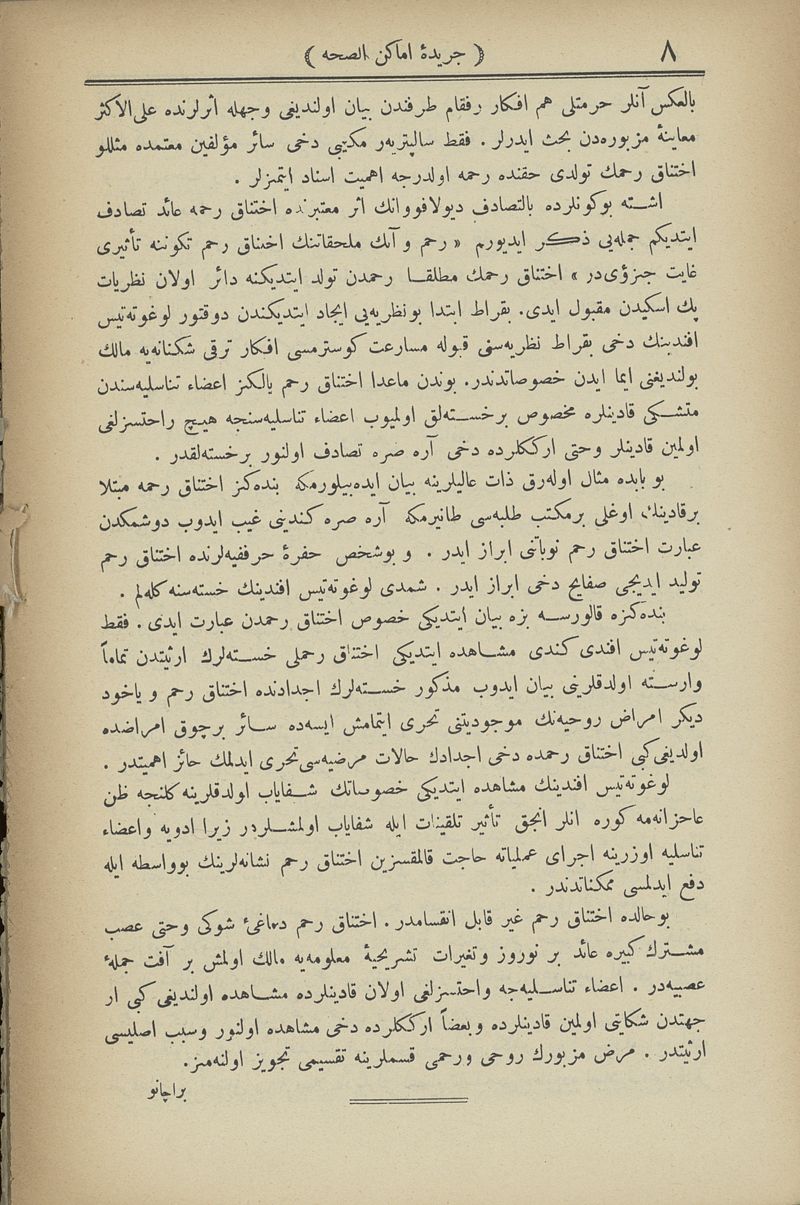 ٨
( جريدهٔ اماكن الصحه )
بالعكس آنلر حرمتلى هم افكار رفقام طرفندن بيان اولنديغى وجهله اثرلرنده على‌الاكثر
معاينهٔ مزبوره‌دن بحث ايدرلر . فقط سالپتريه‌ر مكتبى دخى سائر مؤلفين معتمده مثللو
اختناق رحمك تولدى حقنده رحمه اولدرجه اهميت اسناد ايتمزلر .
اشــته بوكونلرده بالتصادف ديولافووانك اثر معتبرنده اختناق رحمه عائد تصادف
ايتديكم جمله‌يى ذكر ايديورم « رحم و آنك ملحقاتنك اختناق رحم تكوننه تأثيرى
غايت جزؤى‌در » اختناق رحمك مطلقــا رحمدن تولد ايتديكنه دائر اولان نظريات
پك اسكيدن مقبول ايدى. بقراط ابتدا بونظريه‌يى ايجاد ايتديكندن دوقتور لوغوته‌تيس
افندينك دخى بقراط نظريه‌سنى قبوله مسارعت كوسترمسى افكار ترقى شكنانه‌يه مالك
بولنديغنى ايما ايدن خصوصاتدندر. بوندن ماعدا اختناق رحم يالكز اعضاء تناسليه‌سندن
متشــكى قادينلره مخصوص برخســته‌لق اولميوب اعضاء تناسليه‌سنجه هيــچ راحتسزلغى
اولمين قادينلر وحتى ارككلرده دخى آره صره تصادف اولنور برخسته‌لقدر .
بو بابده مثال اوله‌رق ذات عاليلرينه بيان ايده‌بيلورمكه بنده‌كز اختناق رحمه مبتلا
برقادينك اوغلى برمكتب طلبه‌سى طانيرمكه آره صره كندينى غيب ايدوب دوشمكدن
عبارت اختناق رحم نوباتنى ابراز ايدر . و بوشخص حفرهٔ حرقفيه‌لرنده اختناق رحم
توليد ايديجى صفايح دخى ابراز ايدر . شمدى لوغوته‌تيس افندينك خسته‌سنه كله‌لم .
بنده‌كزه قالورســه بزه بيان ايتديكى خصوص اختناق رحمدن عبارت ايدى . فقط
لوغوته‌تيس افندى كندى مشــاهده ايتديكى اختناق رحملى خســته‌لرك ارثيتدن تماماً
وارســته اولدقلرينى بيان ايدوب مذكور خســته‌لرك اجدادنده اختناق رحم و ياخود
ديكر امراض روحيه‌نك موجوديتنى تحرى ايتمامش ايسه‌ده ســائر برچوق امراضده
اولديغى كبى اختناق رحمده دخى اجدادك حالات مرضيه‌سى تحرى ايدلمك حائز اهميتدر .
لوغوته‌تيس افندينك مشاهده ايتديكى خصوصاتك شــفاياب اولدقلرينه كلنجه ظن
عاجزانه‌مه كوره انلر انجق تأثير تلقينات ايله شفاياب اولمشــلردر زيرا ادويه واعضاء
تناسليه اوزرينه اجراى عملياته حاجت قالمقسزين اختناق رحم نشانه‌لرينك بوواسطه ايله
دفع ايدلمسى ممكناتدندر .
بوحالده اختناق رحم غير قابل انقسامدر . اختناق رحم دماغئ شوكى وحتى عصب
مشــترك كبيره عائد بر نوروز وتغيرات تشريحيهٔ معلومه‌يه مالك اولمش بر آفت جملهٔ
عصبيه‌در . اعضاء تناســليه‌جه راحتسزلغى اولان قادينلرده مشــاهده اولنديغى كبى ار
جهتدن شكايتى اولمين قادينلرده وبعضاً ارككلرده دخى مشاهده اولنور وسبب اصليسى
ارثيتدر . مرض مزبورك روحى ورحمى قسملرينه تقسيمى تجويز اولنه‌مز.
براچانو